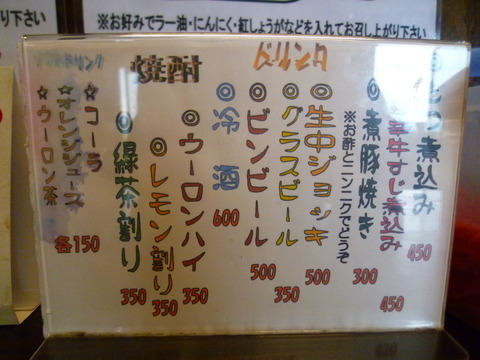 ※お好みでラー油・にんにく・紅しょうがなどを入れてお召し上がり下さい
煮込み
450
牛すじ煮込み
450
◎煮豚焼き
※お酢とニンニクでどうぞ
300
ドリンク
◎生中ジョッキ
500
◎グラスビール
350
◎ビンビール
500
◎冷酒
600
焼酎
◎ウーロンハイ
350
◎レモン割り
350
◎緑茶割り
350
ソフトドリンク
☆コーラ
☆オレンジジュース
☆ウーロン茶
各150